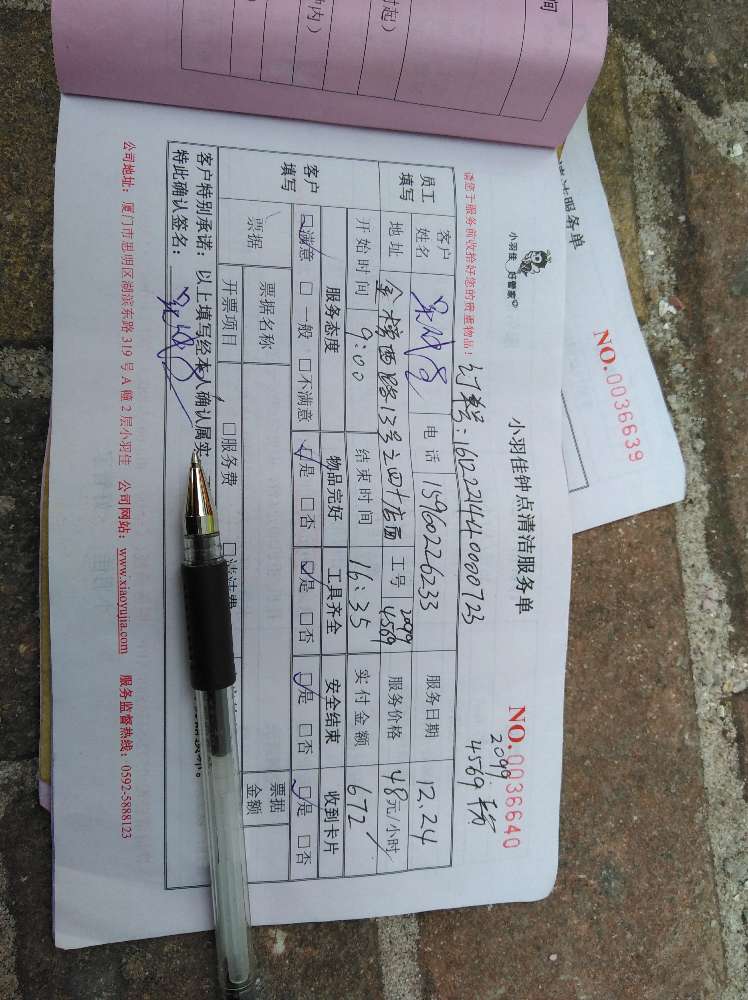 小羽佳 好管家
小羽佳钟点清洁服务单
NO.0036640
2099
4569
请您于服务前收拾好您的贵重物品!
订单号:161221144000723
员工填写
客户姓名 电话 15960226233 服务日期 12.24
地址 金榜西路13号之四十店面 工号 2099 4569 服务价格 48元/小时
开始时间 9:00 结束时间 16:35 实付金额 672
客户填写
服务态度 物品完好 工具齐全 安全结束 收到卡片
☑满意 □一般 □不满意 ☑是 □否 ☑是 □否 ☑是 □否 ☑是 □否
票据 票据名称 票据金额
开票项目 □服务费
客户特别承诺:以上填写经本人确认属实,
特此确认签名:
公司地址:厦门市思明区湖滨东路 319 号 A 幢 2 层小羽佳 公司网站:www.xiaoyujia.com 服务监督热线:0592-5888123
NO.0036639
洁服务单